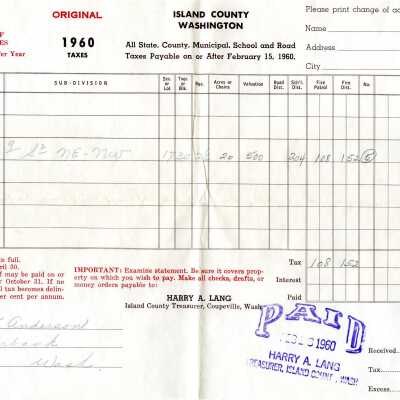 ORIGINAL
1960
TAXES
ISLAND COUNTY
WASHINGTON
All State, County, Municipal, School and Road
Taxes Payable on or After February 15, 1960.
Please print change of ad
Name
Address
City
F
ES
er Year
SUB-DIVISION
Sec. or Lot
Twp. or Blk.
Rge.
Acres or Chains
Valuation
Road Dist.
Sch'l. Dist.
Fire Patrol
Fire Dist.
No.
NE-NW
20 500 204 108 152
s in full.
ril 30.
f may be paid on or
r October 31. If no
l tax becomes delin-
per cent per annum.
IMPORTANT: Examine statement. Be sure it covers prop-
erty on which you wish to pay. Make all checks, drafts, or
money orders payable to:
HARRY A. LANG
Island County Treasurer, Coupeville, Wash.
Tax 108 152
Interest
Paid
Anderson
Wash.
PAID
1960
HARRY A. LANG
TREASURER, ISLAND COUNT , WASH
Received
Tax
Excess